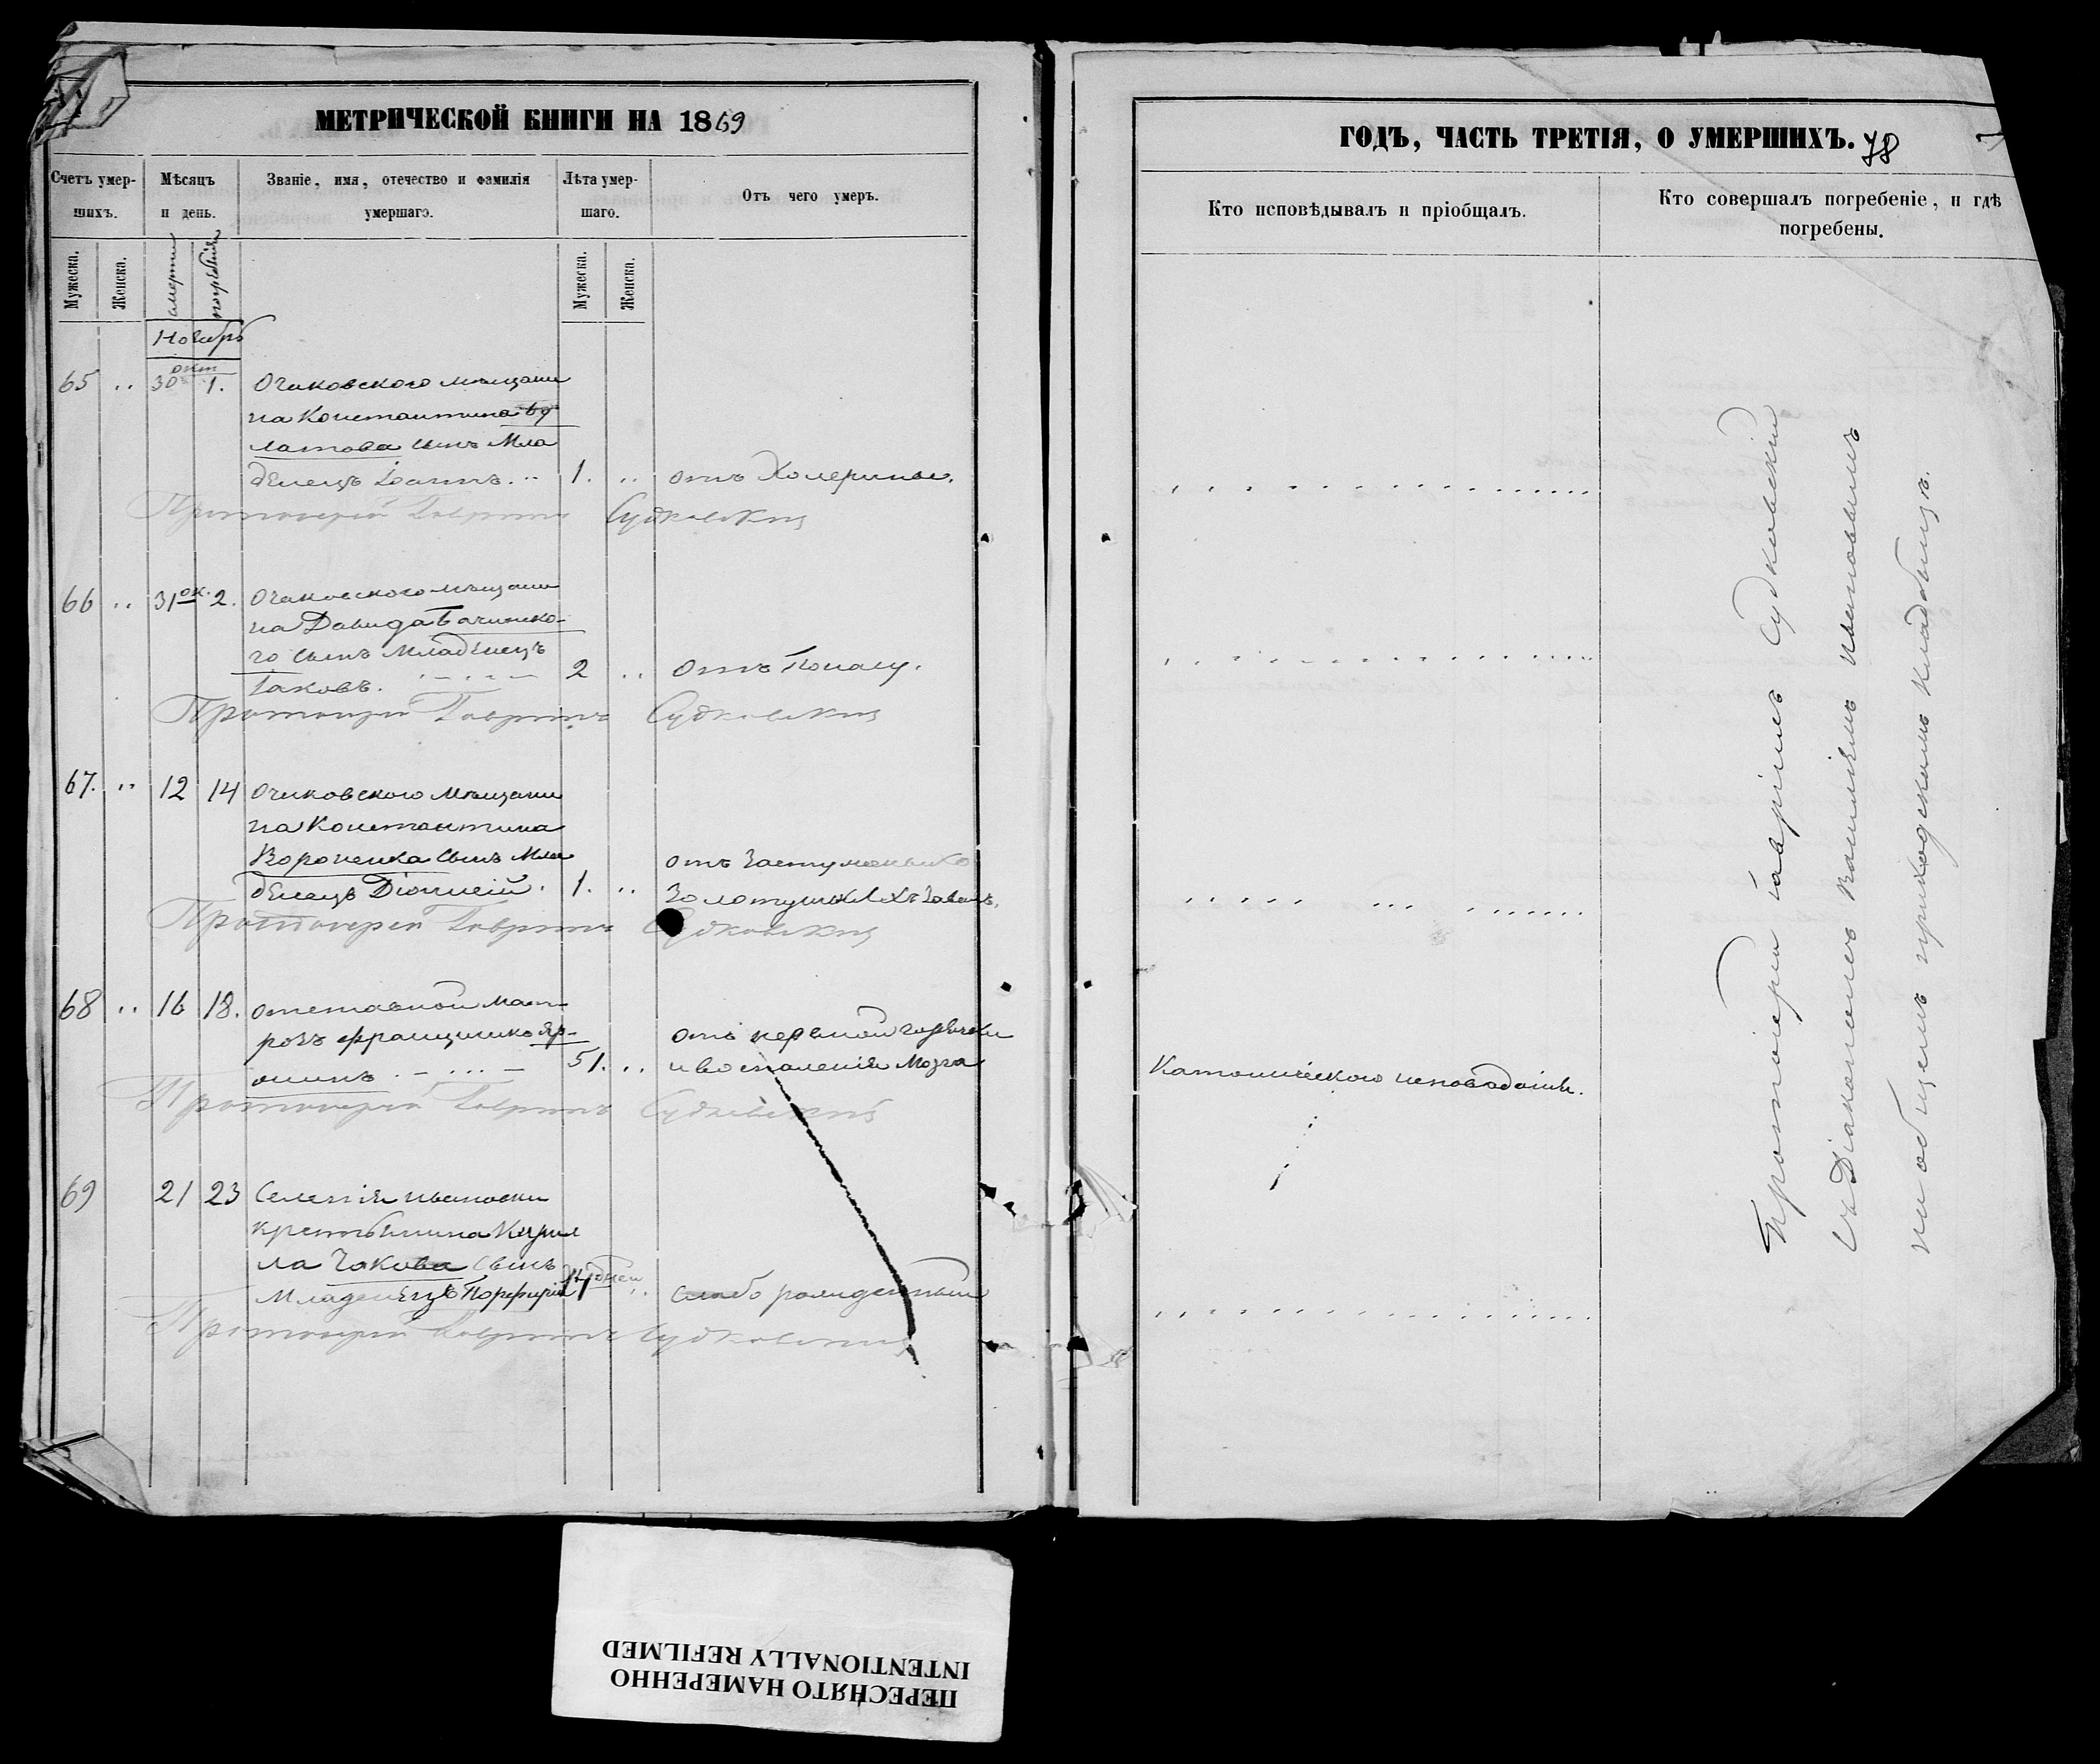 МЕТРИЧЕСКОЙ КНИГИ НА 1869
Счетъ умер-
шихъ.
Мѣсяцъ
и день.
Званіе, имя, отечество и фамилія
умершаго.
Лѣта умер-
шаго.
Отъ чего умеръ.
Мужеска.
Женска.
смерти
погребенія
Мужеска.
Женска.
Ноябрь
окт
65 .. 30 1. Очаковского мѣщани
на Константина Бу
латова сынъ Мла
денецъ Іоаннъ. .. 1. .. отъ Холерины.
Протоіерей Гавріилъ Судковскій
66 .. 31 ок. 2. Очаковского мѣщани
на Давида
го сынъ Младенецъ
Іаковъ. 2 .. Отъ Поносу.
Протоіерей Гавріилъ Судковскій
67. .. 12 14 Очаковского мѣщани
на Константина
Вороненка сынъ Мла
денецъ Діонисій. 1. ..
отъ
Протоіерей Гавріилъ Судковскій
68 .. 16 18. отставной мат-
розъ
51. .. отъ нервной горячки
и воспаленія Мозга
Протоіерей Гавріилъ Судковскій
69 21 23 Селенія Ивановки
крестьянина Кирил
ла Чакова сынъ
Младенецъ Порфирій дней .. слабо рожденный
Протоіерей Гавріилъ Судковскій
ГОДЪ, ЧАСТЬ ТРЕТІЯ, О УМЕРШИХЪ. 78
Кто исповѣдывалъ и пріобщалъ.
Кто совершалъ погребеніе, и гдѣ
погребены.
Католического исповеданія.
Протоіерей Гавріилъ Судковскій
съ Діакономъ Василіемъ Ивановымъ
на общемъ приходскомъ кладбищѣ.
ПЕРЕСНЯТО НАМЕРЕННО
INTENTIONALLY REFILMED